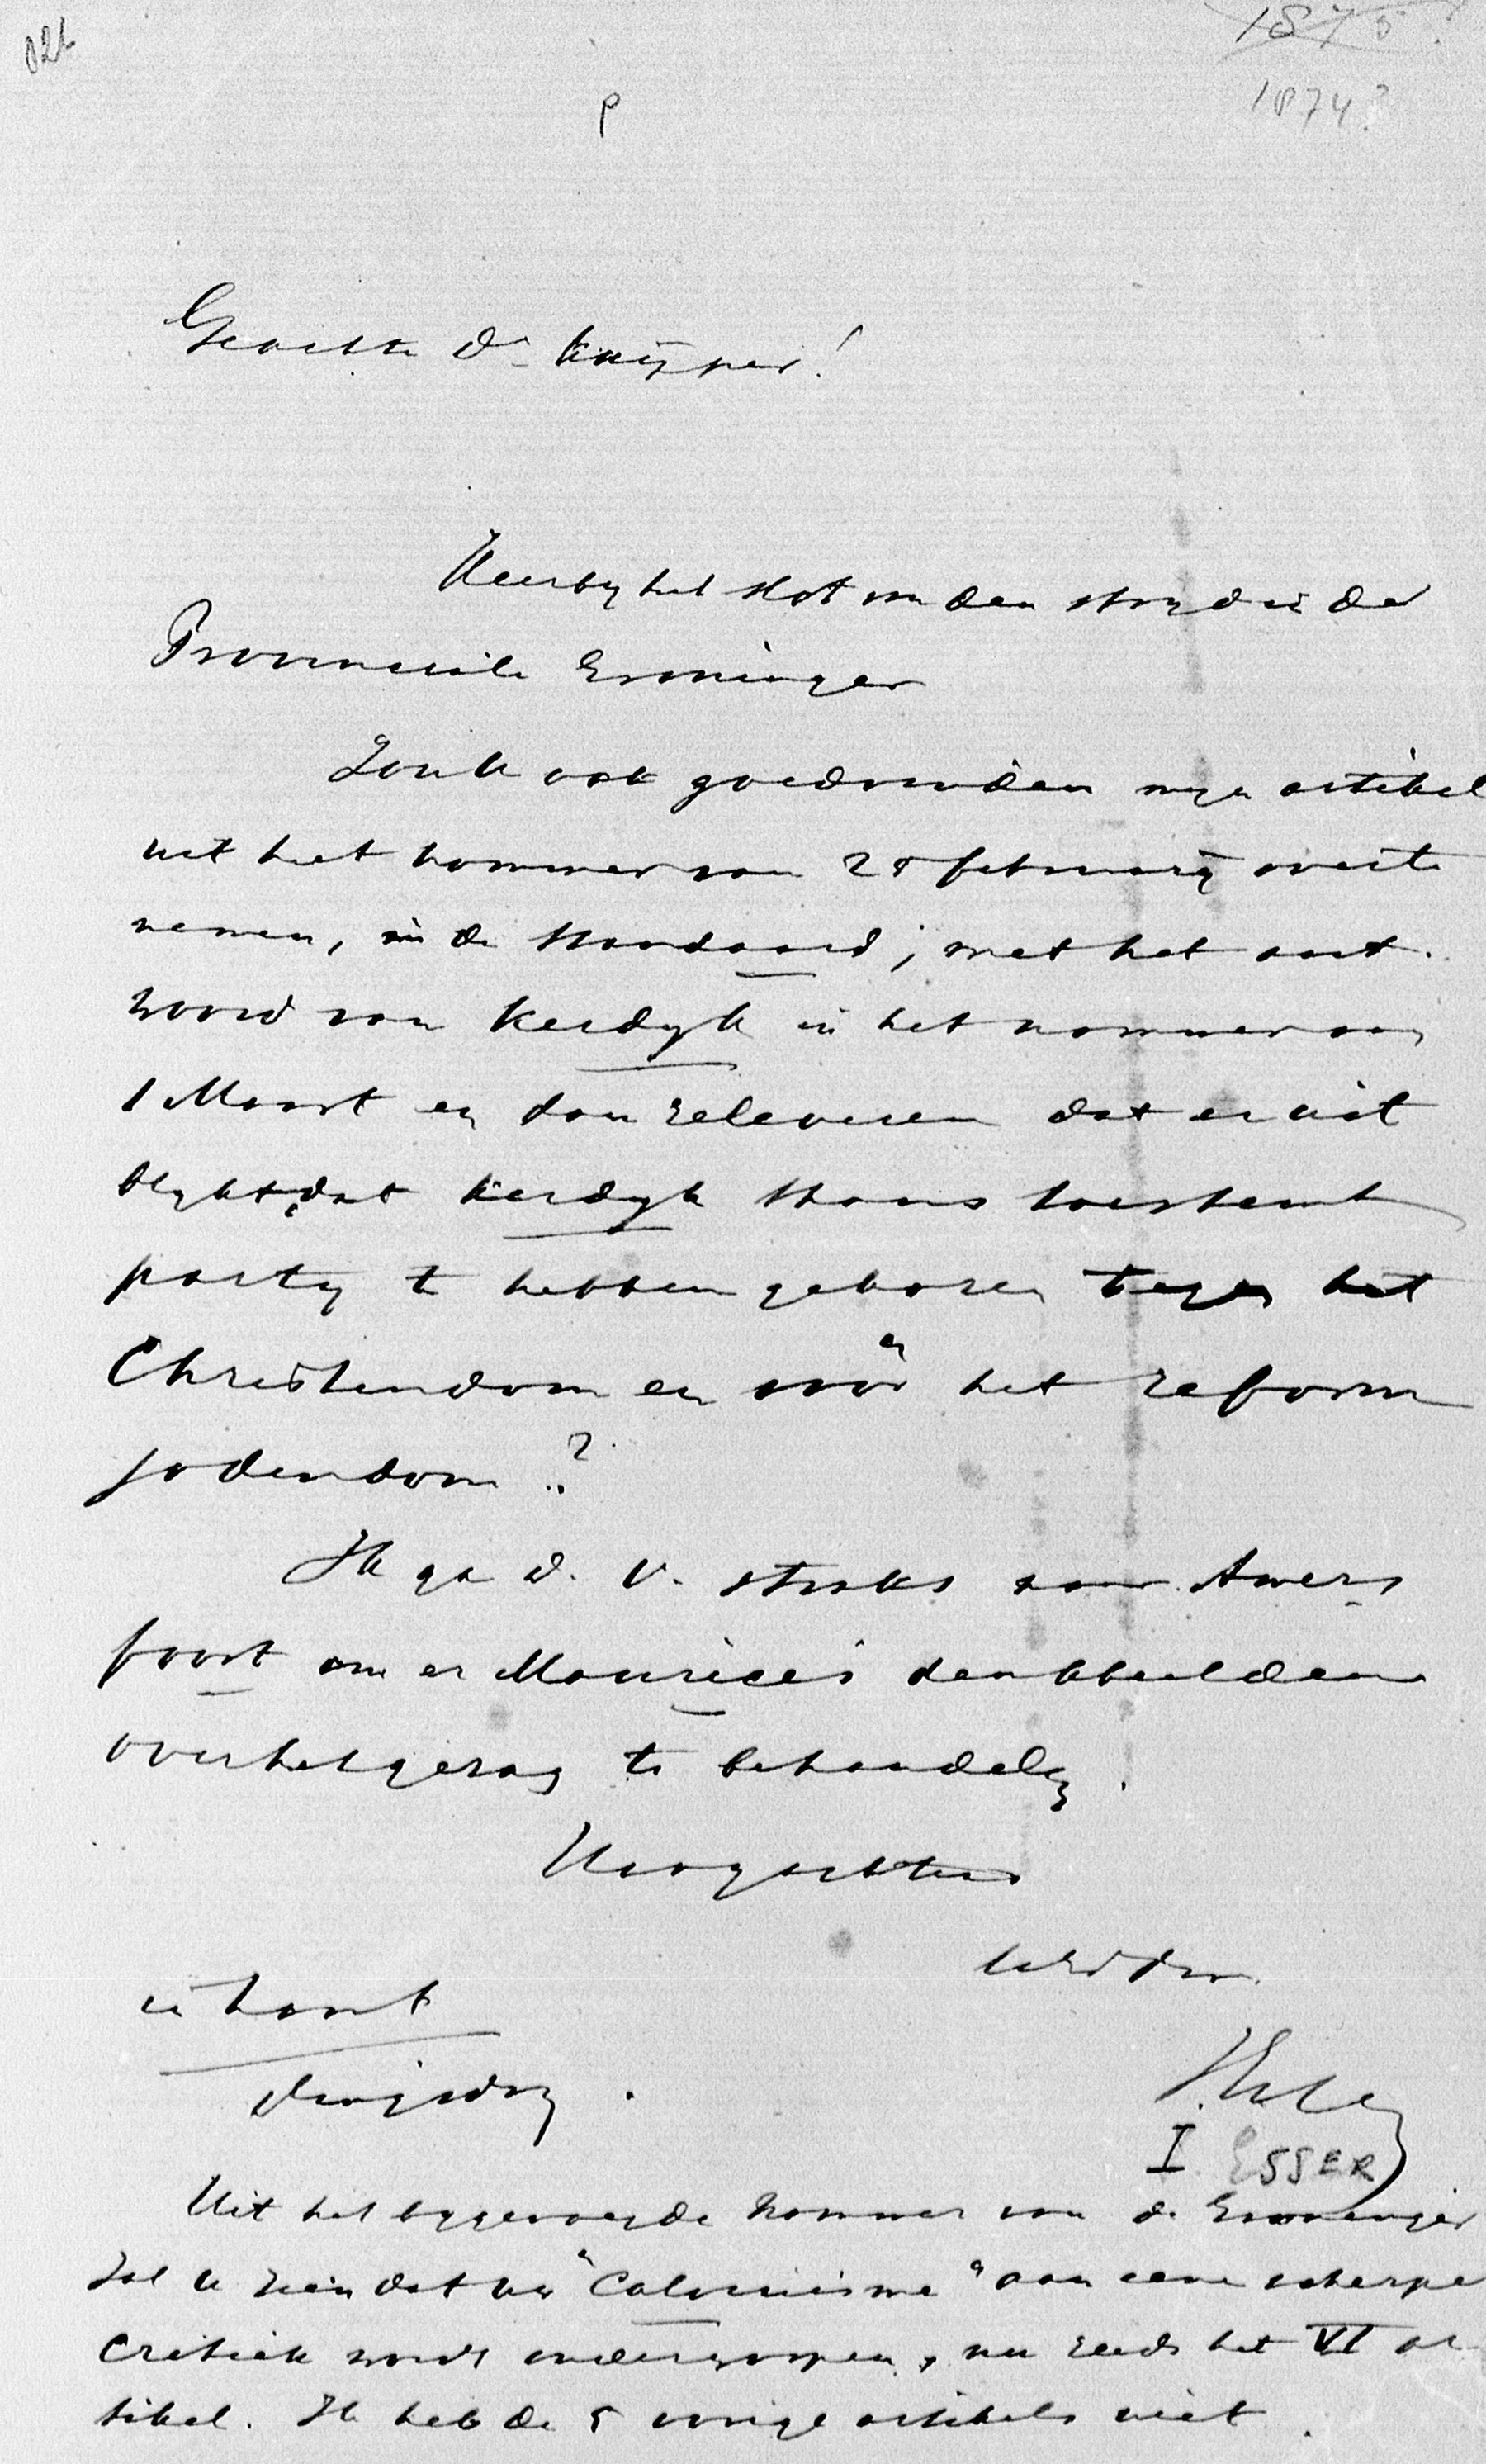 1875?
1874?
P
Geachte Dr Kuijper!
Hierby het slot van den stryd in de
Provinciale Groninger
Zou U ook goedvinden myn artikel
uit het nommer van 28 february overte
nemen, in de Standaard, met het ant-
woord van Kerdyk in het nommer van
1 Maart en dan releveren dat er uit
blykt, dat Kerdyk thans toestemt
party te hebben gekozen tegen het
Christendom en vóór het reform
jodendom?
Ik ga D. V. straks naar Amers
foort om er Maurice's denkbeelden
over het gezag te behandelen.
Hoogachtend
Uw dr
in haast
dingsdag.
I. Esser
I ESSER
Uit het bygevoegde nommer van de Groninger
zal U zien dat uw "Calvinisme" aan eene scherpe
critiek wordt onderworpen, nu reeds het VI ar
tikel. Ik heb de 5 vorige artikels niet.